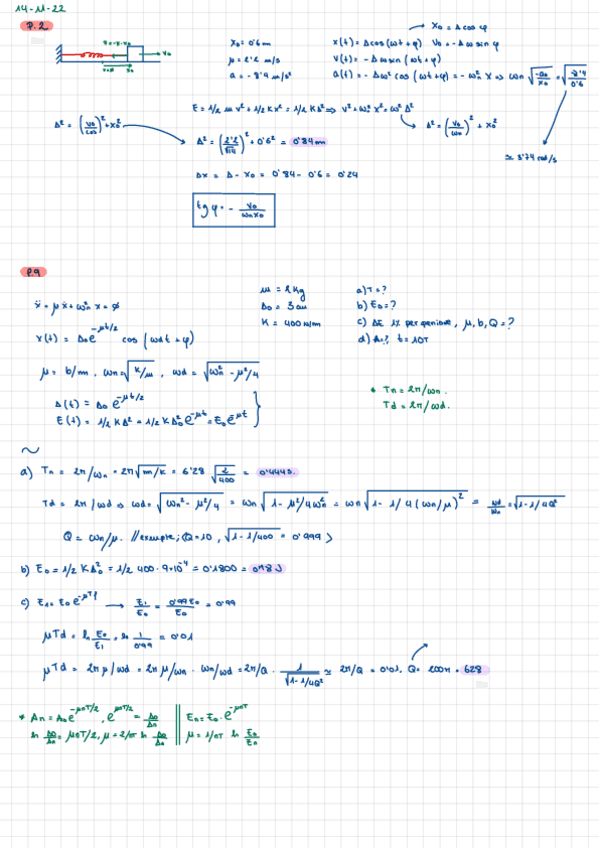 14-11-22
P.2
x₀ = 0'6 m
μ = 2'2 m/s
a = -8'4 m/s²
x₀ = A cos φ
x(t) = A cos(ωt+φ) v₀ = -A ω sin φ
v(t) = -A ω sin(ωt+φ)
a(t) = -Aω² cos(ωt+φ) = -ωn² x ⇒ ωn √(-a₀/x₀) = √(-8'4/0'6)
≈ 3'74 rad/s
E = 1/2 m v² + 1/2 K x² = 1/2 K A² ⇒ v² + ωn² x² = ω² A²
A² = (v₀/ω)² + x₀²
A² = (2'2/√14)² + 0'6² = 0'84 m
A² = (v₀/ωn)² + x₀²
Δx = A - x₀ = 0'84 - 0'6 = 0'24
tg φ = - v₀/ωn x₀
P.9
m = 2 Kg
A₀ = 3 cm
K = 400 N/m
a) T = ?
b) E₀ = ?
c) ΔE 1% per periode, μ, b, Q = ?
d) A = ?, t = 10T
ẍ + μ ẋ + ωn² x = 0
x(t) = A₀ e^(-μt/2) cos(ωd t + φ)
μ = b/m, ωn = √(k/m), ωd = √(ωn² - μ²/4)
A(t) = A₀ e^(-μt/2)
E(t) = 1/2 K A² = 1/2 K A₀² e^(-μt) = E₀ e^(-μt)
* Tn = 2π/ωn.
Td = 2π/ωd.
a) Tn = 2π/ωn = 2π √(m/k) = 6'28 √(2/400) = 0'444 s.
Td = 2π/ωd ⇒ ωd = √(ωn² - μ²/4) = ωn √(1 - μ²/4ωn²) = ωn √(1 - 1/4(ωn/μ)²) = ωd/ωn = √(1 - 1/4Q²)
Q = ωn/μ. // exemple; (Q = 10, √(1 - 1/400) = 0'999)
b) E₀ = 1/2 K A₀² = 1/2 400 · 9·10⁻⁴ = 0'1800 = 0'18 J
c) E₁ = E₀ e^(-μT) → E₁/E₀ = 0'99 E₀/E₀ = 0'99
μTd = ln E₀/E₁ = ln 1/0'99 = 0'01
μTd = 2π μ/ωd = 2π μ/ωn · ωn/ωd = 2π/Q · 1/√(1 - 1/4Q²) ≈ 2π/Q = 0'01. Q = 200π = 628
* An = A₀ e^(-μnT/2), e^(μnT/2) = A₀/An
ln A₀/An = μnT/2, μ = 2/nT ln A₀/An
En = E₀ · e^(-μnT)
μ = 1/nT ln E₀/En